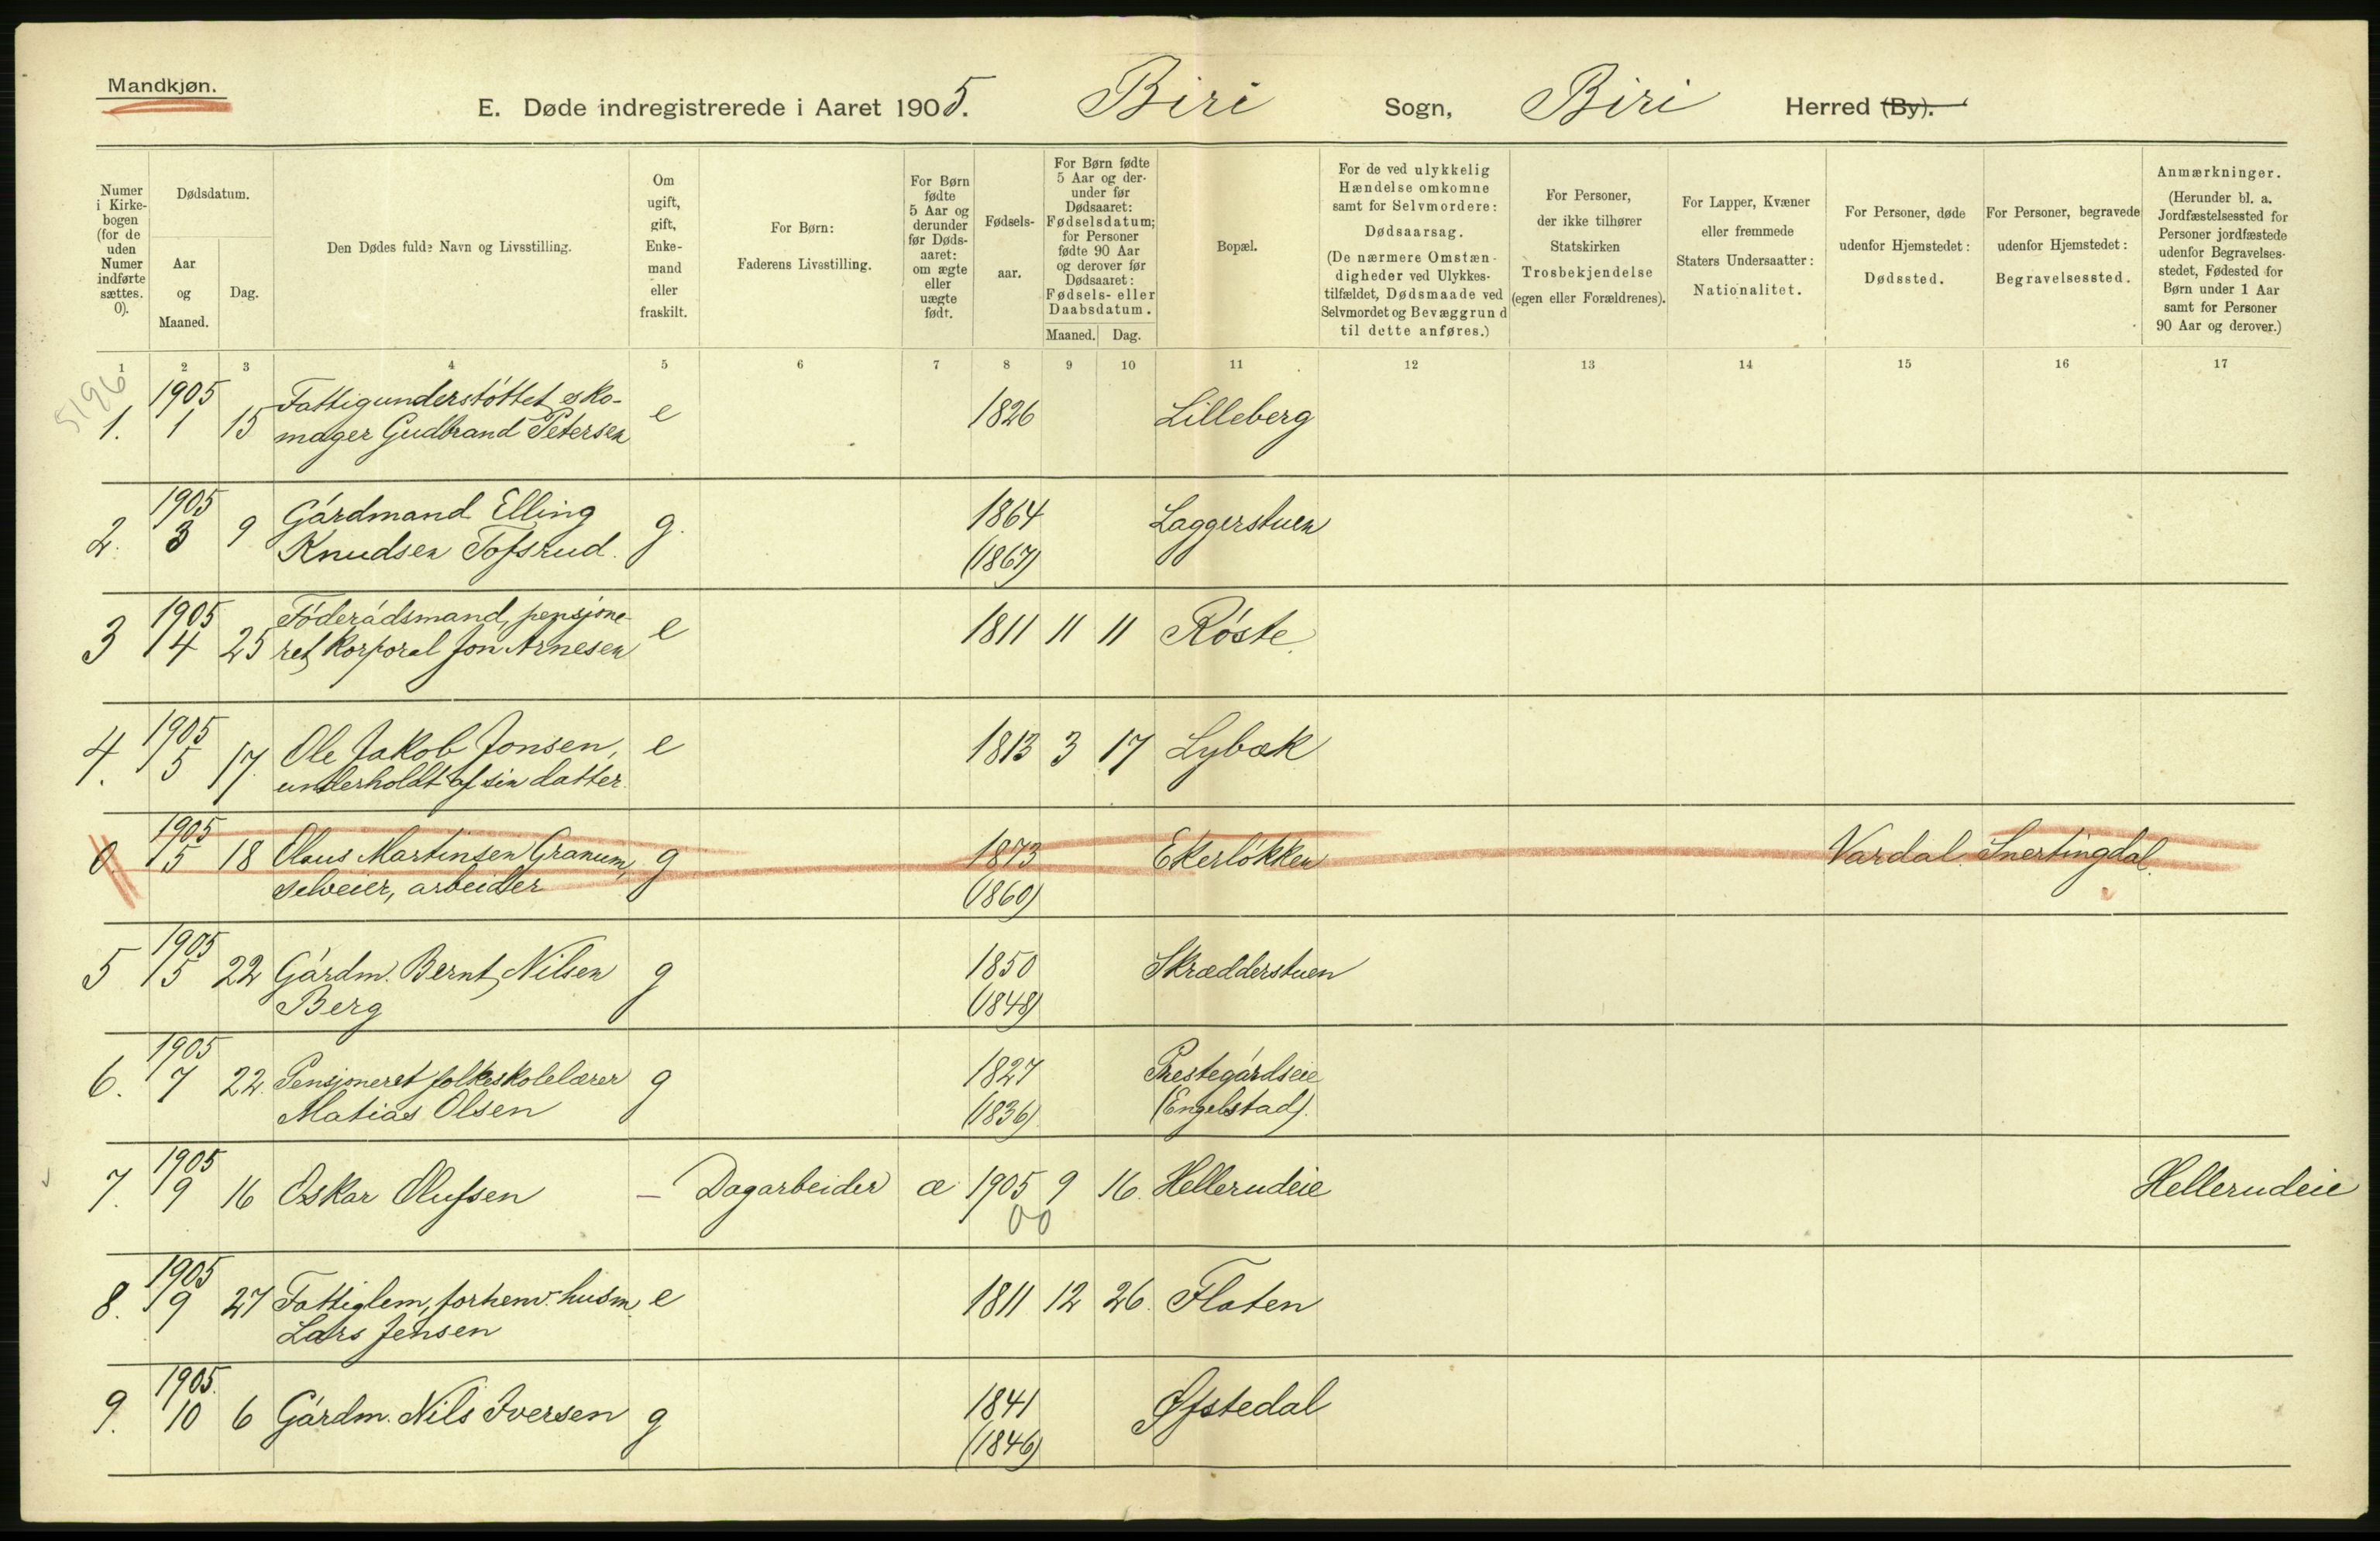 Mandkjøn.
E. Døde indregistrerede i Aaret 1905. Biri Sogn, Biri Herred (By).
Numer i Kirke-bogen (for de uden Numer indførte sættes. 0).
Dødsdatum.
Aar og Maaned.
Dag.
Den Dødes fulde Navn og Livsstilling.
Om ugift, gift, Enke-mand eller fraskilt.
For Børn: Faderens Livsstilling.
For Børn fødte 5 Aar og derunder før Døds-aaret: om ægte eller uægte født.
Fødsels-aar.
For Børn fødte 5 Aar og der-under før Dødsaaret: Fødselsdatum; for Personer fødte 90 Aar og derover før Dødsaaret: Fødsels- eller Daabsdatum.
Maaned. Dag.
Bopæl.
For de ved ulykkelig Hændelse omkomne samt for Selvmordere: Dødsaarsag. (De nærmere Omstæn-digheder ved Ulykkes-tilfældet, Dødsmaade ved Selvmordet og Bevæggrund til dette anføres.)
For Personer, der ikke tilhører Statskirken Trosbekjendelse (egen eller Forældrenes).
For Lapper, Kvæner eller fremmede Staters Undersaatter: Nationalitet.
For Personer, døde udenfor Hjemstedet: Dødssted.
For Personer, begravede udenfor Hjemstedet: Begravelsessted.
Anmærkninger. (Herunder bl. a. Jordfæstelsessted for Personer jordfæstede udenfor Begravelses-stedet, Fødested for Børn under 1 Aar samt for Personer 90 Aar og derover.)
1 2 3 4 5 6 7 8 9 10 11 12 13 14 15 16 17
5196
1905 Fattigunderstöttet sko-
1. 1 15 mager Gudbrand Petersen e 1826 Lilleberg
1905 Gárdmand Elling 1864
2. 3 9 Knudsen Tofsrud. g. (1867) Laggerstuen
1905 Föderádsmand, pensjone-
3 4 25 ret korporal Jon Arnesen e 1811 11 11 Röste.
1905
4. 5 17. Ole Jakob Jonsen, e 1813 3 17 Lybæk
underholdt af sin datter.
1905
0. 5 18 Olaus Martinsen Granum, g 1873 Ekerlökken Vardal. Snertingdal.
selveier, arbeider (1860)
1905
5 5 22 Gárdm. Bernt Nilsen g 1850 Skrædderstuen
Berg (1848)
1905
6. 7 22. Pensjoneret folkeskolelærer g 1827 Prestegárdseie
Matias Olsen (1836). (Engelstad).
1905
7. 9 16 Oskar Olufsen – Dagarbeider æ 1905 9 16. Hellerudeie Hellerudeie
00
1905
8. 9 27 Fattiglem, forhenv. husm. e 1811 12 26. Flaten
Lars Jensen
1905.
9. 10 6 Gárdm. Nils Iversen g 1841 Øfstedal
(1846)